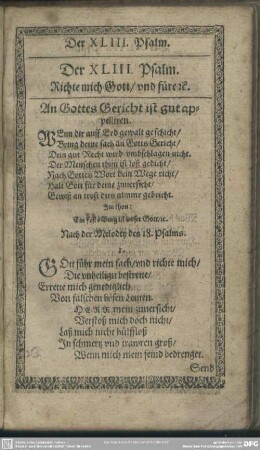 Der XLIII. Psalm.
Der XLIII. Psalm.
Richte mich Gott/ vnd füre ꝛc.
An Gottes Gericht ist gut appelliren.
WEnn dir auff Erd gewalt geschicht/
Bring deine sach an Gotts Gericht/
Dein gut Recht wird vmbschlagen nicht.
Der Menschen thun ist lose gedicht/
Nach Gottes Wort dein Wege richt/
Halt Gott für deine zuuersicht/
Gewiß an trost dirs nimme gebricht.
Im thon:
Ein feste Burg ist vnser Gott/ꝛc.
Nach der Melodey des 18. Psalms.
1.
GOtt führ mein sach/ vnd richte mich/
Die vnheilign bestreite/
Errette mich genediglich/
Von falschen bösen Leuten.
HERR mein zuuersicht/
Verstoß mich doch nicht/
Laß mich nicht hülffloß
In schmertz vnd trawren groß/
Wenn mich mein feind bedrenget.
Send